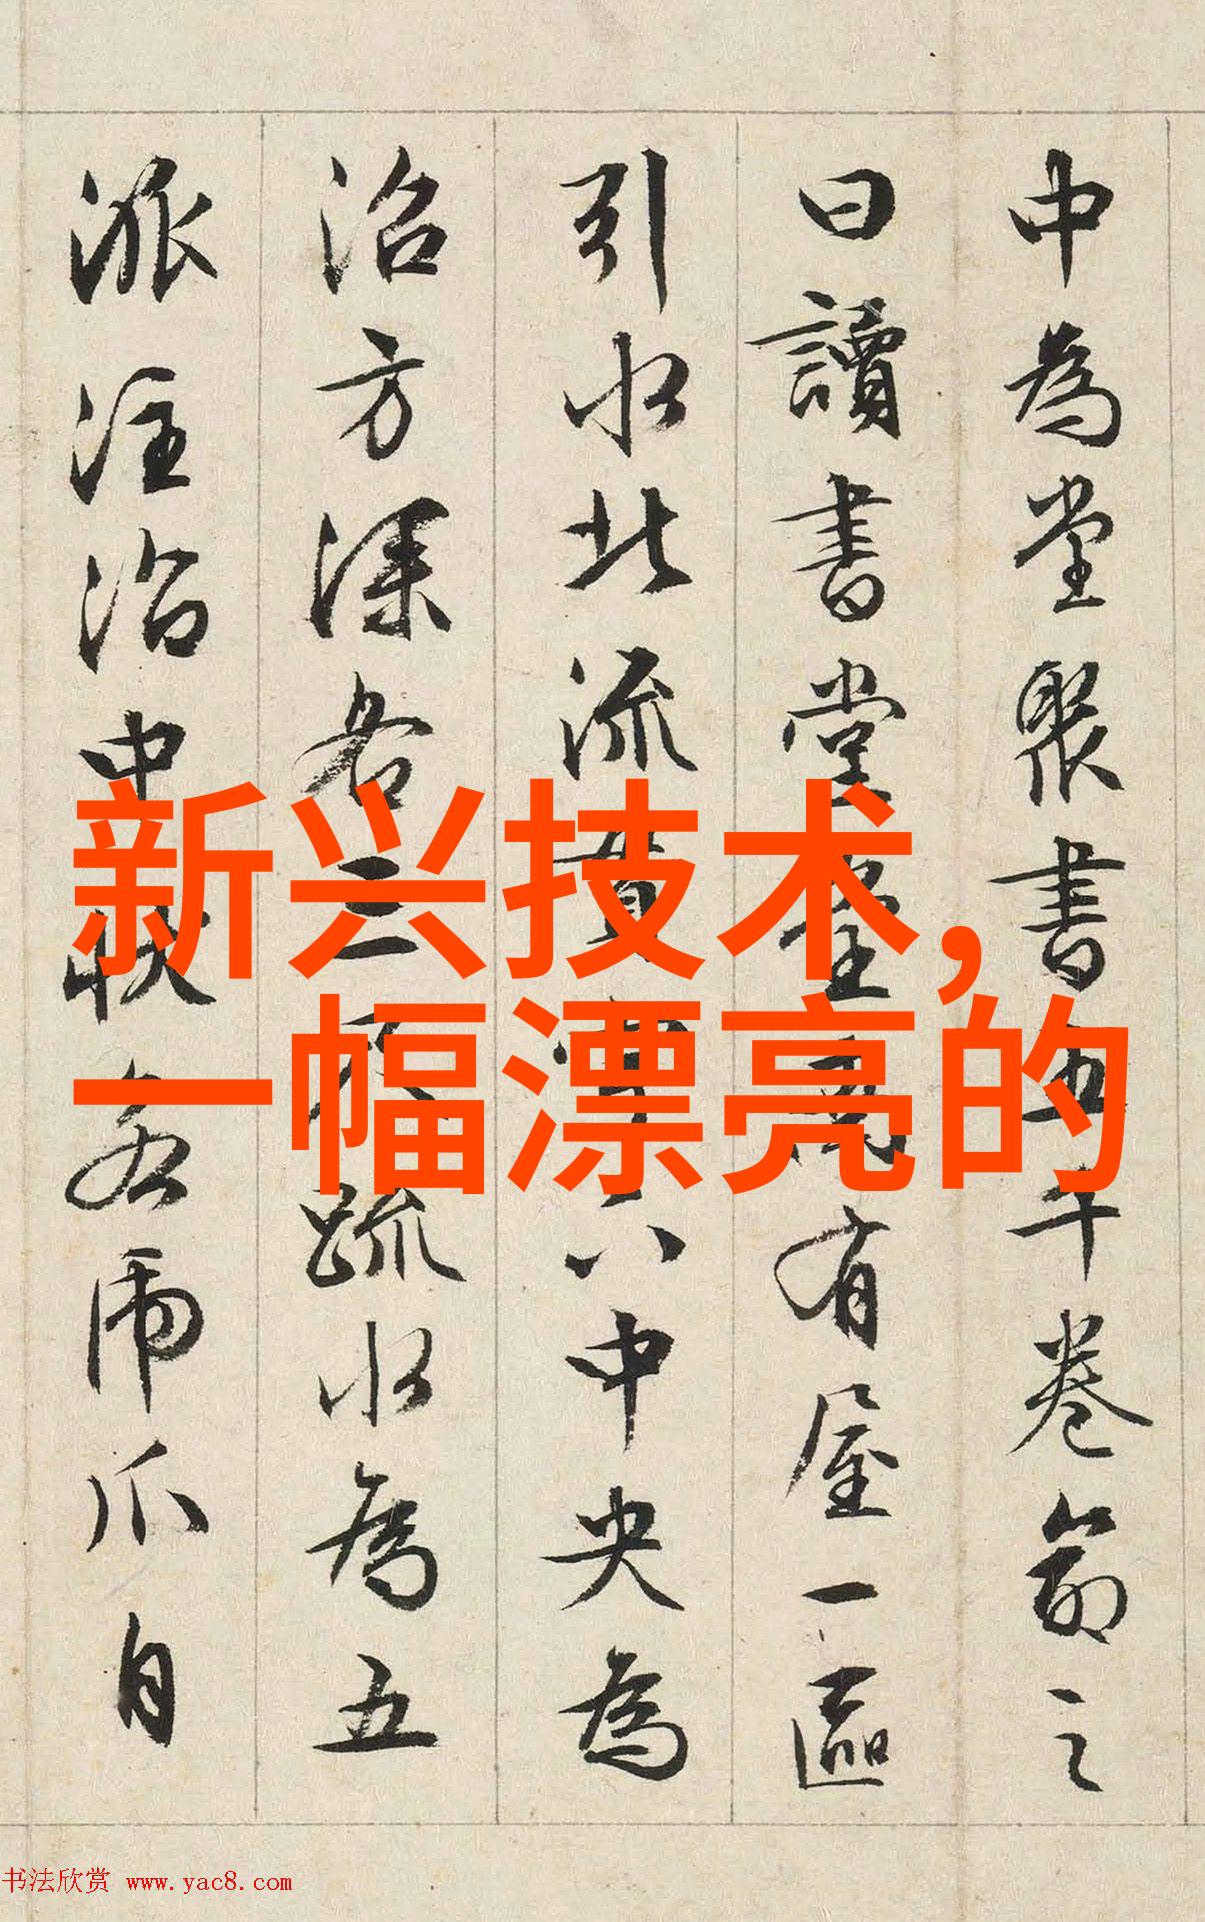 中為堂聚書五千卷命之
曰讀書堂堂南有屋一區
引水北流貫宇下中央為
沼方深各三尺疏水為五
派注沼中狀若虎爪自
新兴技术,
一幅漂亮的
书法欣赏 www.yac8.com